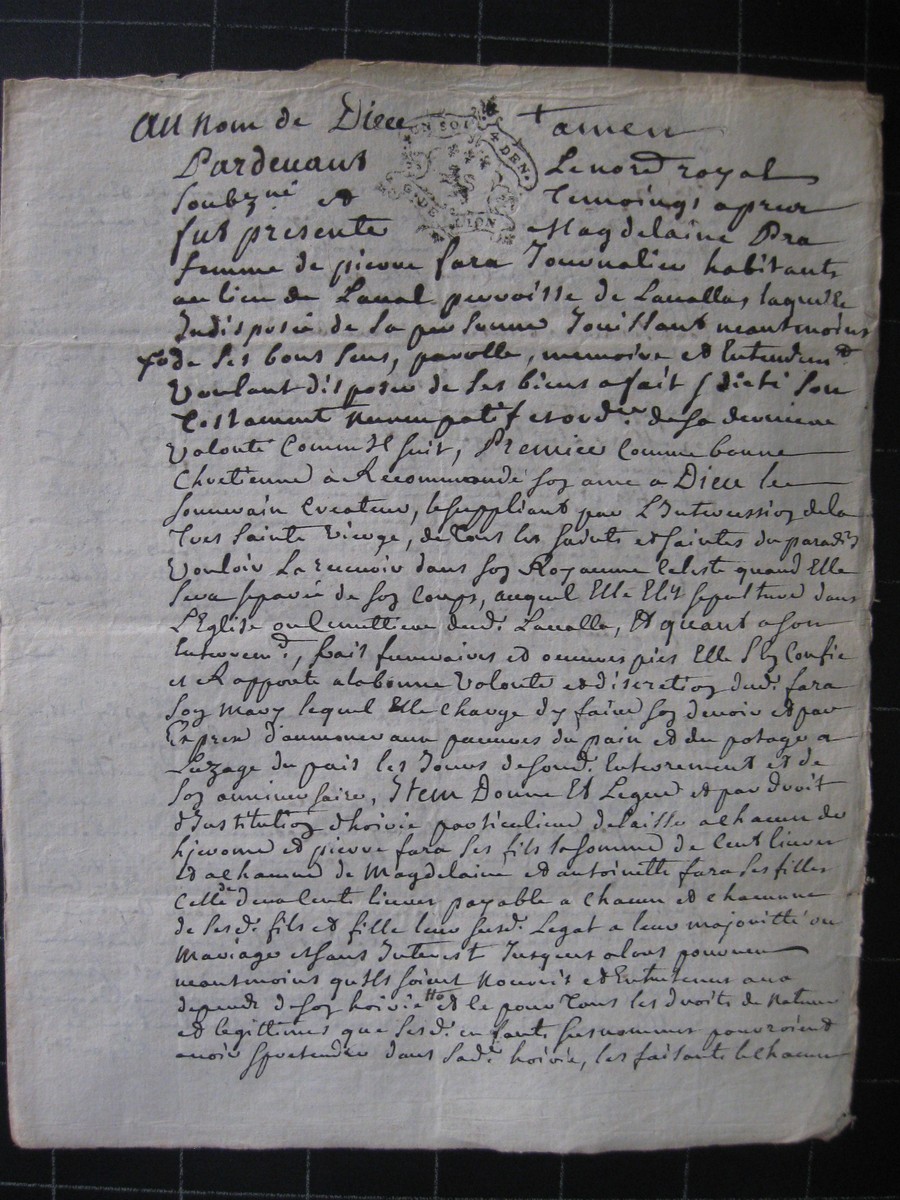 au nom de Dieu † amen
Pardevant Le not.re royal
soubz.né et Temoings apres
fut presente Magdelaine Pra
femme de pierre fara Journalier habitants
au lieu de Laval parroisse de Lavalla, laquelle
Indisposée de sa personne Jouissant neantmoins
de ses bons sens, parolle, memoire et Entendem.t
Voulant disposer de ses biens a fait & dicté son
Testament nuncupatif et ord.re de sa derniere
Volonté Comme Il suit, Premier Comme bonne
Chretienne à Recommandé son ame a Dieu le
Souverain Createur, le suppliant par L'Intercession de la
Tres Sainte Vierge, de Tous les saints et saintes du paradis
Vouloir La recevoir dans son Royaume Celeste quand Elle
Sera separée de son Corps, auquel Elle Elit sepulture dans
L'Eglise ou Cimettiere dud.t Lavalla, Et quant a son
Enterrem.t, frais funeraires et oeuvres pies Elle s'en Confie
et Rapporte a la bonne Volonté et discretion dud.t fara
son mary lequel Elle Charge d'y faire son devoir et par
Exprez d'aumoner aux pauvres du pain et du potage a
L'uzage du païs les Jours de son d.t Enterrement et de
son anniversaire, Item Donne Et Legue et par droit
d'Institution d'hoirie particuliere delaisse a chacun de
hierome et pierre fara ses fils la somme de Cent livres
Et a chacune de Magdelaine et antoinette fara ses filles
Celle de Cents livres payable a chacun et chacunne
de sesd.t fils et fille leur susd.t Legat a leur majoritté ou
Mariage et sans Interest Jusques alors pourveu
neantmoins qu'Ils soient Nourris et Entretenus aux
depends de son hoirie et ce pour Tous les droits de Nature
et legittimes que sesd.t enfants susnommes pourroient
avoir & pretendre dans sad.t hoirie, les faisants le chacun